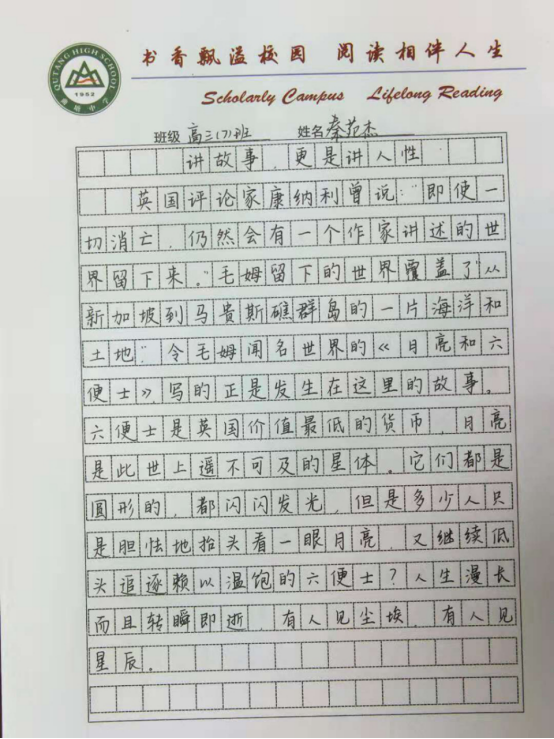 QUTANG HIGH SCHOOL
1952
瞿塘中学
书香飘溢校园 阅读相伴人生
Scholarly Campus Lifelong Reading
班级 高三(7)班 姓名 秦苑杰
讲故事,更是讲人性
英国评论家康纳利曾说:“即使一
切消亡,仍然会有一个作家讲述的世
界留下来。”毛姆留下的世界覆盖了“从
新加坡到马贵斯礁群岛的一片海洋和
土地”令毛姆闻名世界的《月亮和六
便士》写的正是发生在这里的故事。
六便士是英国价值最低的货币,月亮
是此世上遥不可及的星体。它们都是
圆形的,都闪闪发光,但是多少人只
是胆怯地抬头看一眼月亮,又继续低
头追逐赖以温饱的六便士?人生漫长
而且转瞬即逝,有人见尘埃,有人见
星辰。